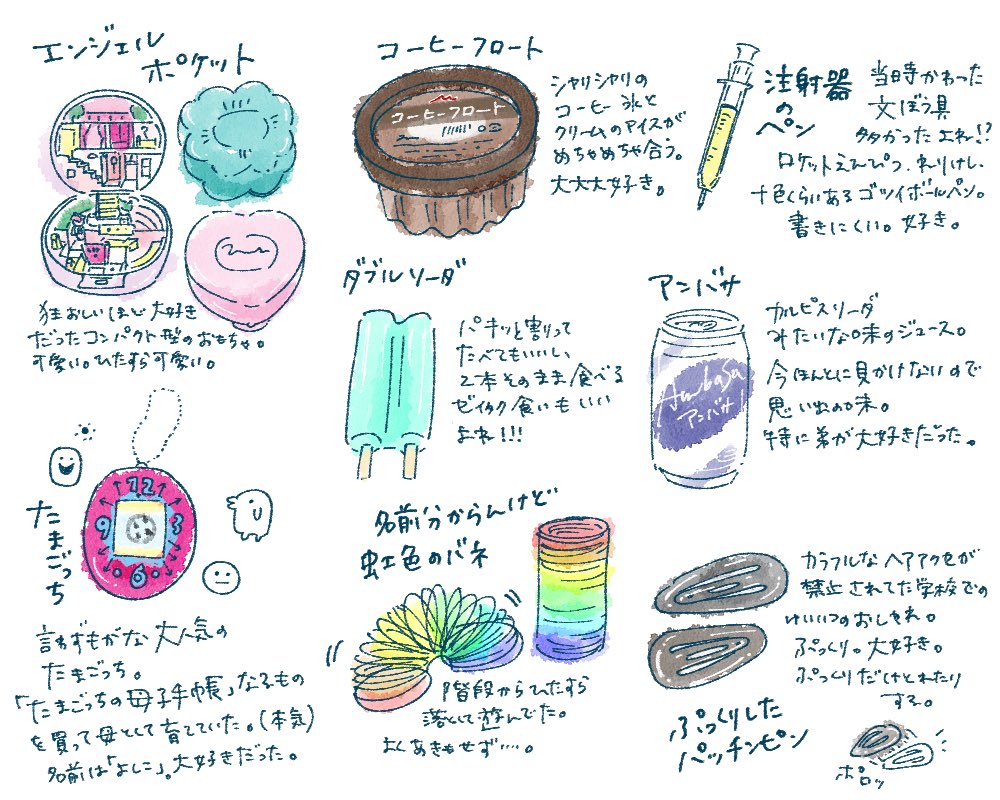 エンジェル
ポケット
狂おしいほど大好き
だったコンパクト型のおもちゃ。
可愛い。ひたすら可愛い。
コーヒーフロート
コーヒーフロート
シャリシャリの
コーヒー氷と
クリームのアイスが
めちゃめちゃ合う。
大大大好き。
注射器
の
ペン
当時かわった
文ぼう具
多かったよね!?
ロケットえんぴつ、ねりけし、
十色くらいあるゴツイボールペン。
書きにくい。好き。
ダブルソーダ
パキッと割って
たべてもいいし
2本そのまま食べる
ゼイタク食いもいい
よね!!!
アンバサ
Ambasa
アンバサ
カルピスソーダ
みたいな味のジュース。
今ほんとに見かけないので
思い出の味。
特に弟が大好きだった。
たまごっち
12
9
3
6
言わずもがな大人気の
たまごっち。
「たまごっちの母子手帳」なるもの
を買って母として育てていた。(本気)
名前は「よしこ」。大好きだった。
名前分からんけど
虹色のバネ
階段からひたすら
落として遊んでた。
よくあきもせず…。
カラフルなヘアアクセが
禁止されてた学校での
ゆいいつのおしゃれ。
ぷっくり。大好き。
ぷっくりだけとれたり
する。
ぷっくりした
パッチンピン
ポロッ